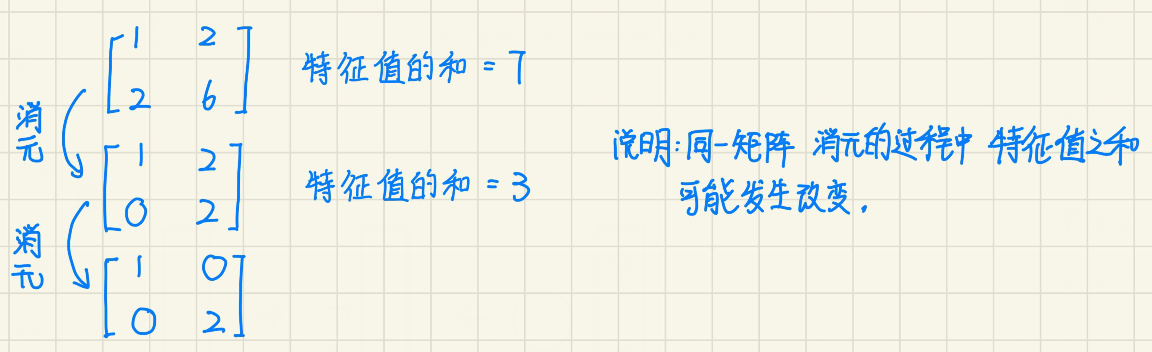 1 2
2 6
特征值的和 = 7
消元
1 2
0 2
特征值的和 = 3
消元
1 0
0 2
说明:同一矩阵 消元的过程中 特征值之和
可能发生改变.